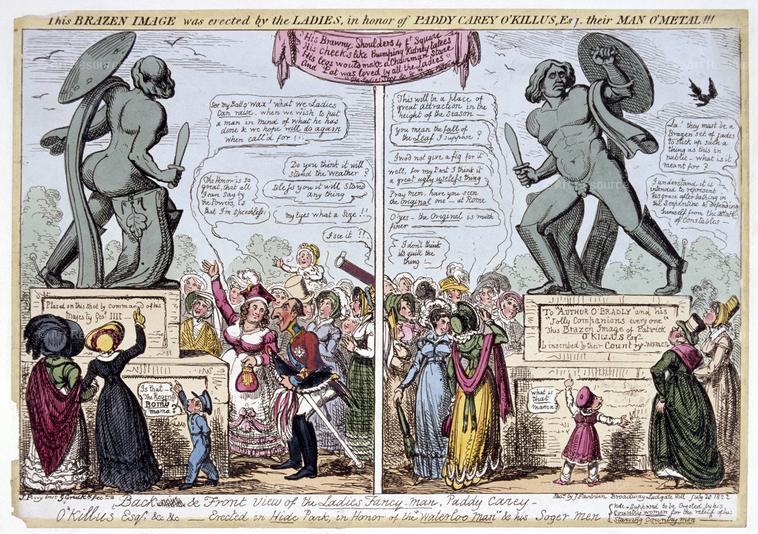 This BRAZEN IMAGE was erected by the LADIES, in honor of PADDY CAREY O'KILLUS, Esq. their MAN O'METAL!!!
His Brawny Shoulders 4 ft Square
His Cheeks like thumping Kidney tatees
His legs would make a Chairman Stare
And Pat was loved by all the Ladies
See my Ball o' Wax! what we Ladies
Can raise, when we wish to put
a man in mind of what he has
done & we hope will do again
when call'd for!
The Honor is so
great, that all
I can Say by
the Powers, is
that I'm Speechless.
Do you think it will
Stand the Weather?
Bless you it will Stand
any thing
My Eyes what a Size!!
I see it!!
Placed on this Spot by Command of his
Majesty Geo IIII
Is that
The Regent's
BOMB
mama?
This will be a place of
great attraction in the
height of the Season
you mean the fall of
the Leaf I suppose?
I wo'd not give a fig for it
well, for my Part I think it
a great ugly useless thing
Pray mem, have you seen
the Original one at Rome
O yes - the Original is much
finer
I don't think
its quite the
thing
La! they must be a
Brazen set of jades
to stick up such a
thing as this in
public - what is it
meant for?
I understand it is
intended to represent
his grace after bathing in
the Serpentine & defending
himself from the attack
of Constables
To "ARTHUR O'BRADLY" and his
Jolly Companions every one
This Brazen Image of Patrick
O'KILLUS Esq.
is inscribed by their Country-women
what is
that
mama?
Back & Front View of the Ladies Fancy-man, Paddy Carey-
O'Killus Esq. &c &c Erected in Hide Park, in Honor of the "Waterloo Man" & his Soger men
Pubd. by J. Fairburn Broadway Ludgate Hill July 20 1822
Note - Supposed to be Erected by his
Country women for the relief of his
Starving Country men